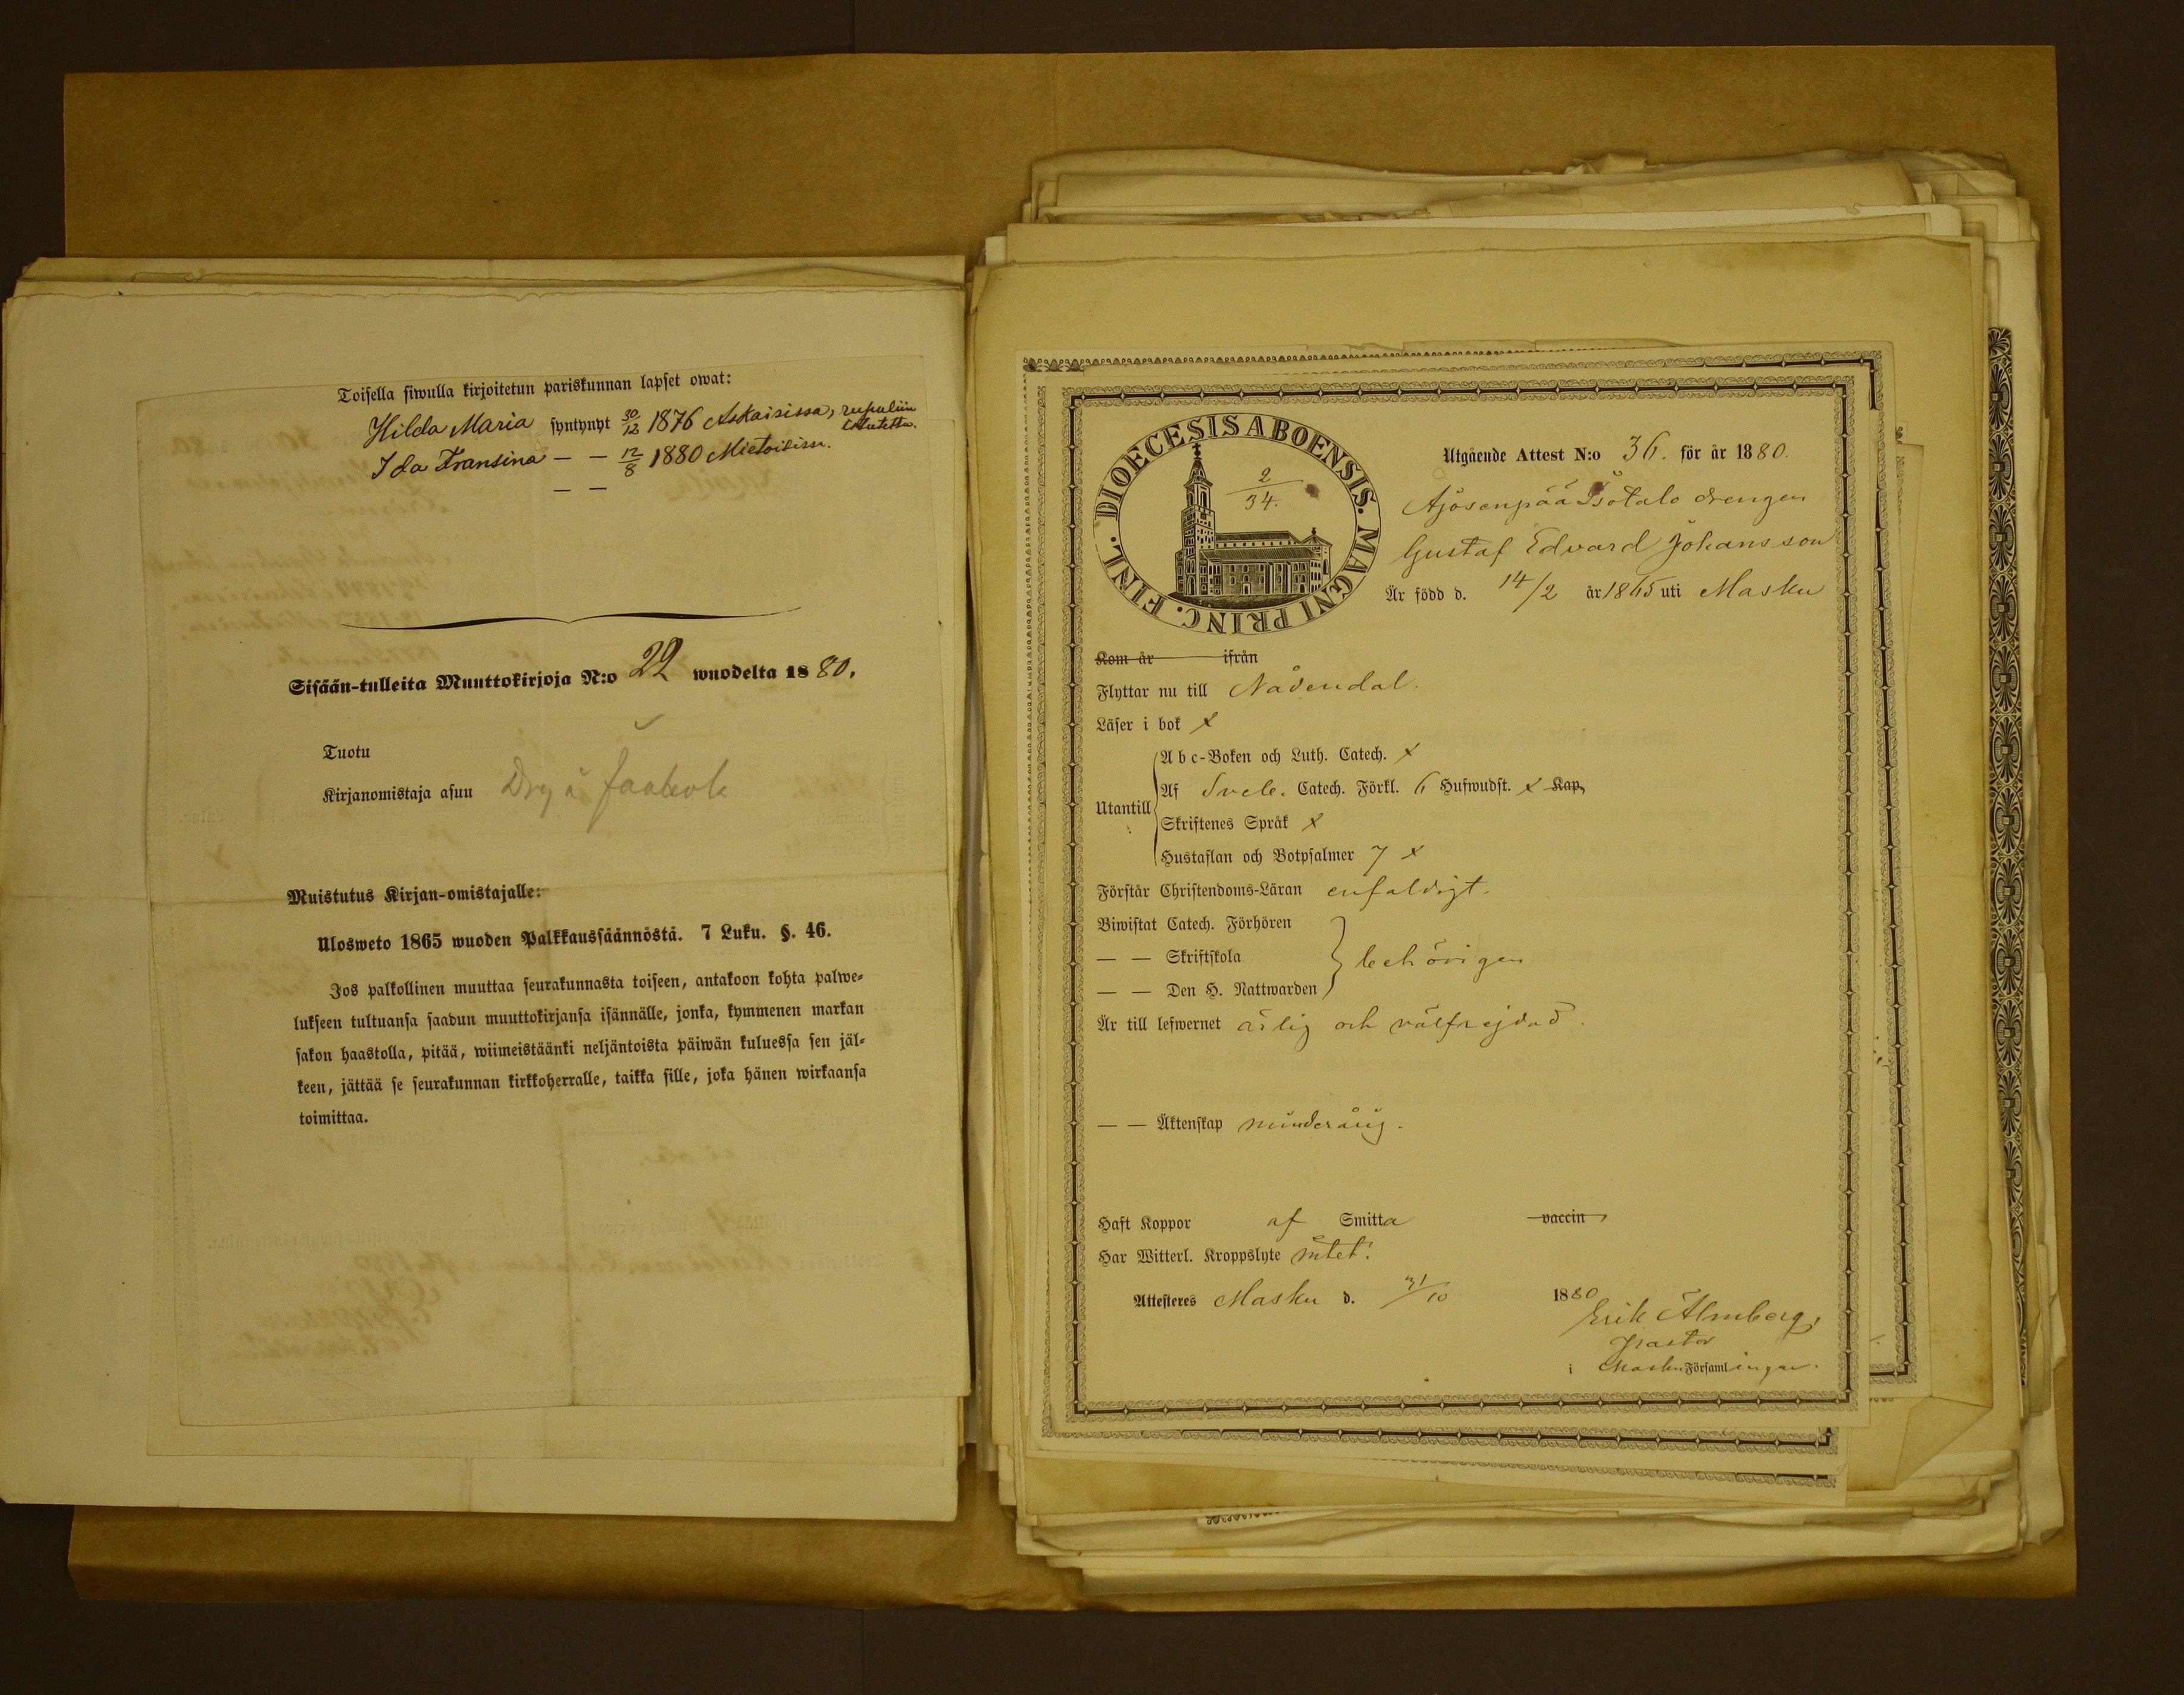 Toisella siwulla kirjoitetun pariskunnan lapset owat:
Hilda Maria syntynyt 30/12 1876 Askaisissa, rupuliin
istutettu.
Ida Fransina — — 12/8 1880 Mietoisissa.
— —
Sisään-tulleita Muuttokirjoja N:o 22 wuodelta 1880.
Tuotu
Kirjanomistaja asuu Dry å
Muistutus Kirjan-omistajalle:
Ulosweto 1865 wuoden Palkkaussäännöstä. 7 Luku. §. 46.
Jos palkollinen muuttaa seurakunnasta toiseen, antakoon kohta palwe-
lukseen tultuansa saadun muuttokirjansa isännälle, jonka, kymmenen markan
sakon haastolla, pitää, wiimeistäänki neljäntoista päiwän kuluessa sen jäl-
keen, jättää se seurakunnan kirkkoherralle, taikka sille, joka hänen wirkaansa
toimittaa.
DIOECESIS ABOENSIS. MAGNI PRINC. FINL.
2/34.
Utgående Attest N:o 36. för år 1880.
Ajosenpää Isotalo drengen
Gustaf Edvard Johansson
Är född d. 14/2 år 1865 uti Masku
Kom år ifrån
Flyttar nu till Nådendal.
Läser i bok x
Utantill
A b c-Boken och Luth. Catech. x
Af Sveb. Catech. Förkl. 6 Hufwudst. x Kap.
Skriftenes Språk x
Hustaflan och Botpsalmer 7 x
Förstår Christendoms-Läran enfaldigt.
Biwistat Catech. Förhören
— — Skriftskola behörigen
— — Den H. Nattwarden
Är till lefwernet ärlig och välfrejdad.
— — Äktenskap minderårig.
Haft Koppor af Smitta vaccin
Har Witterl. Kroppslyte intet.
Attesteres Masku d. 31/10 1880
Erik Almberg,
Pastor
i Masku Församlingar.